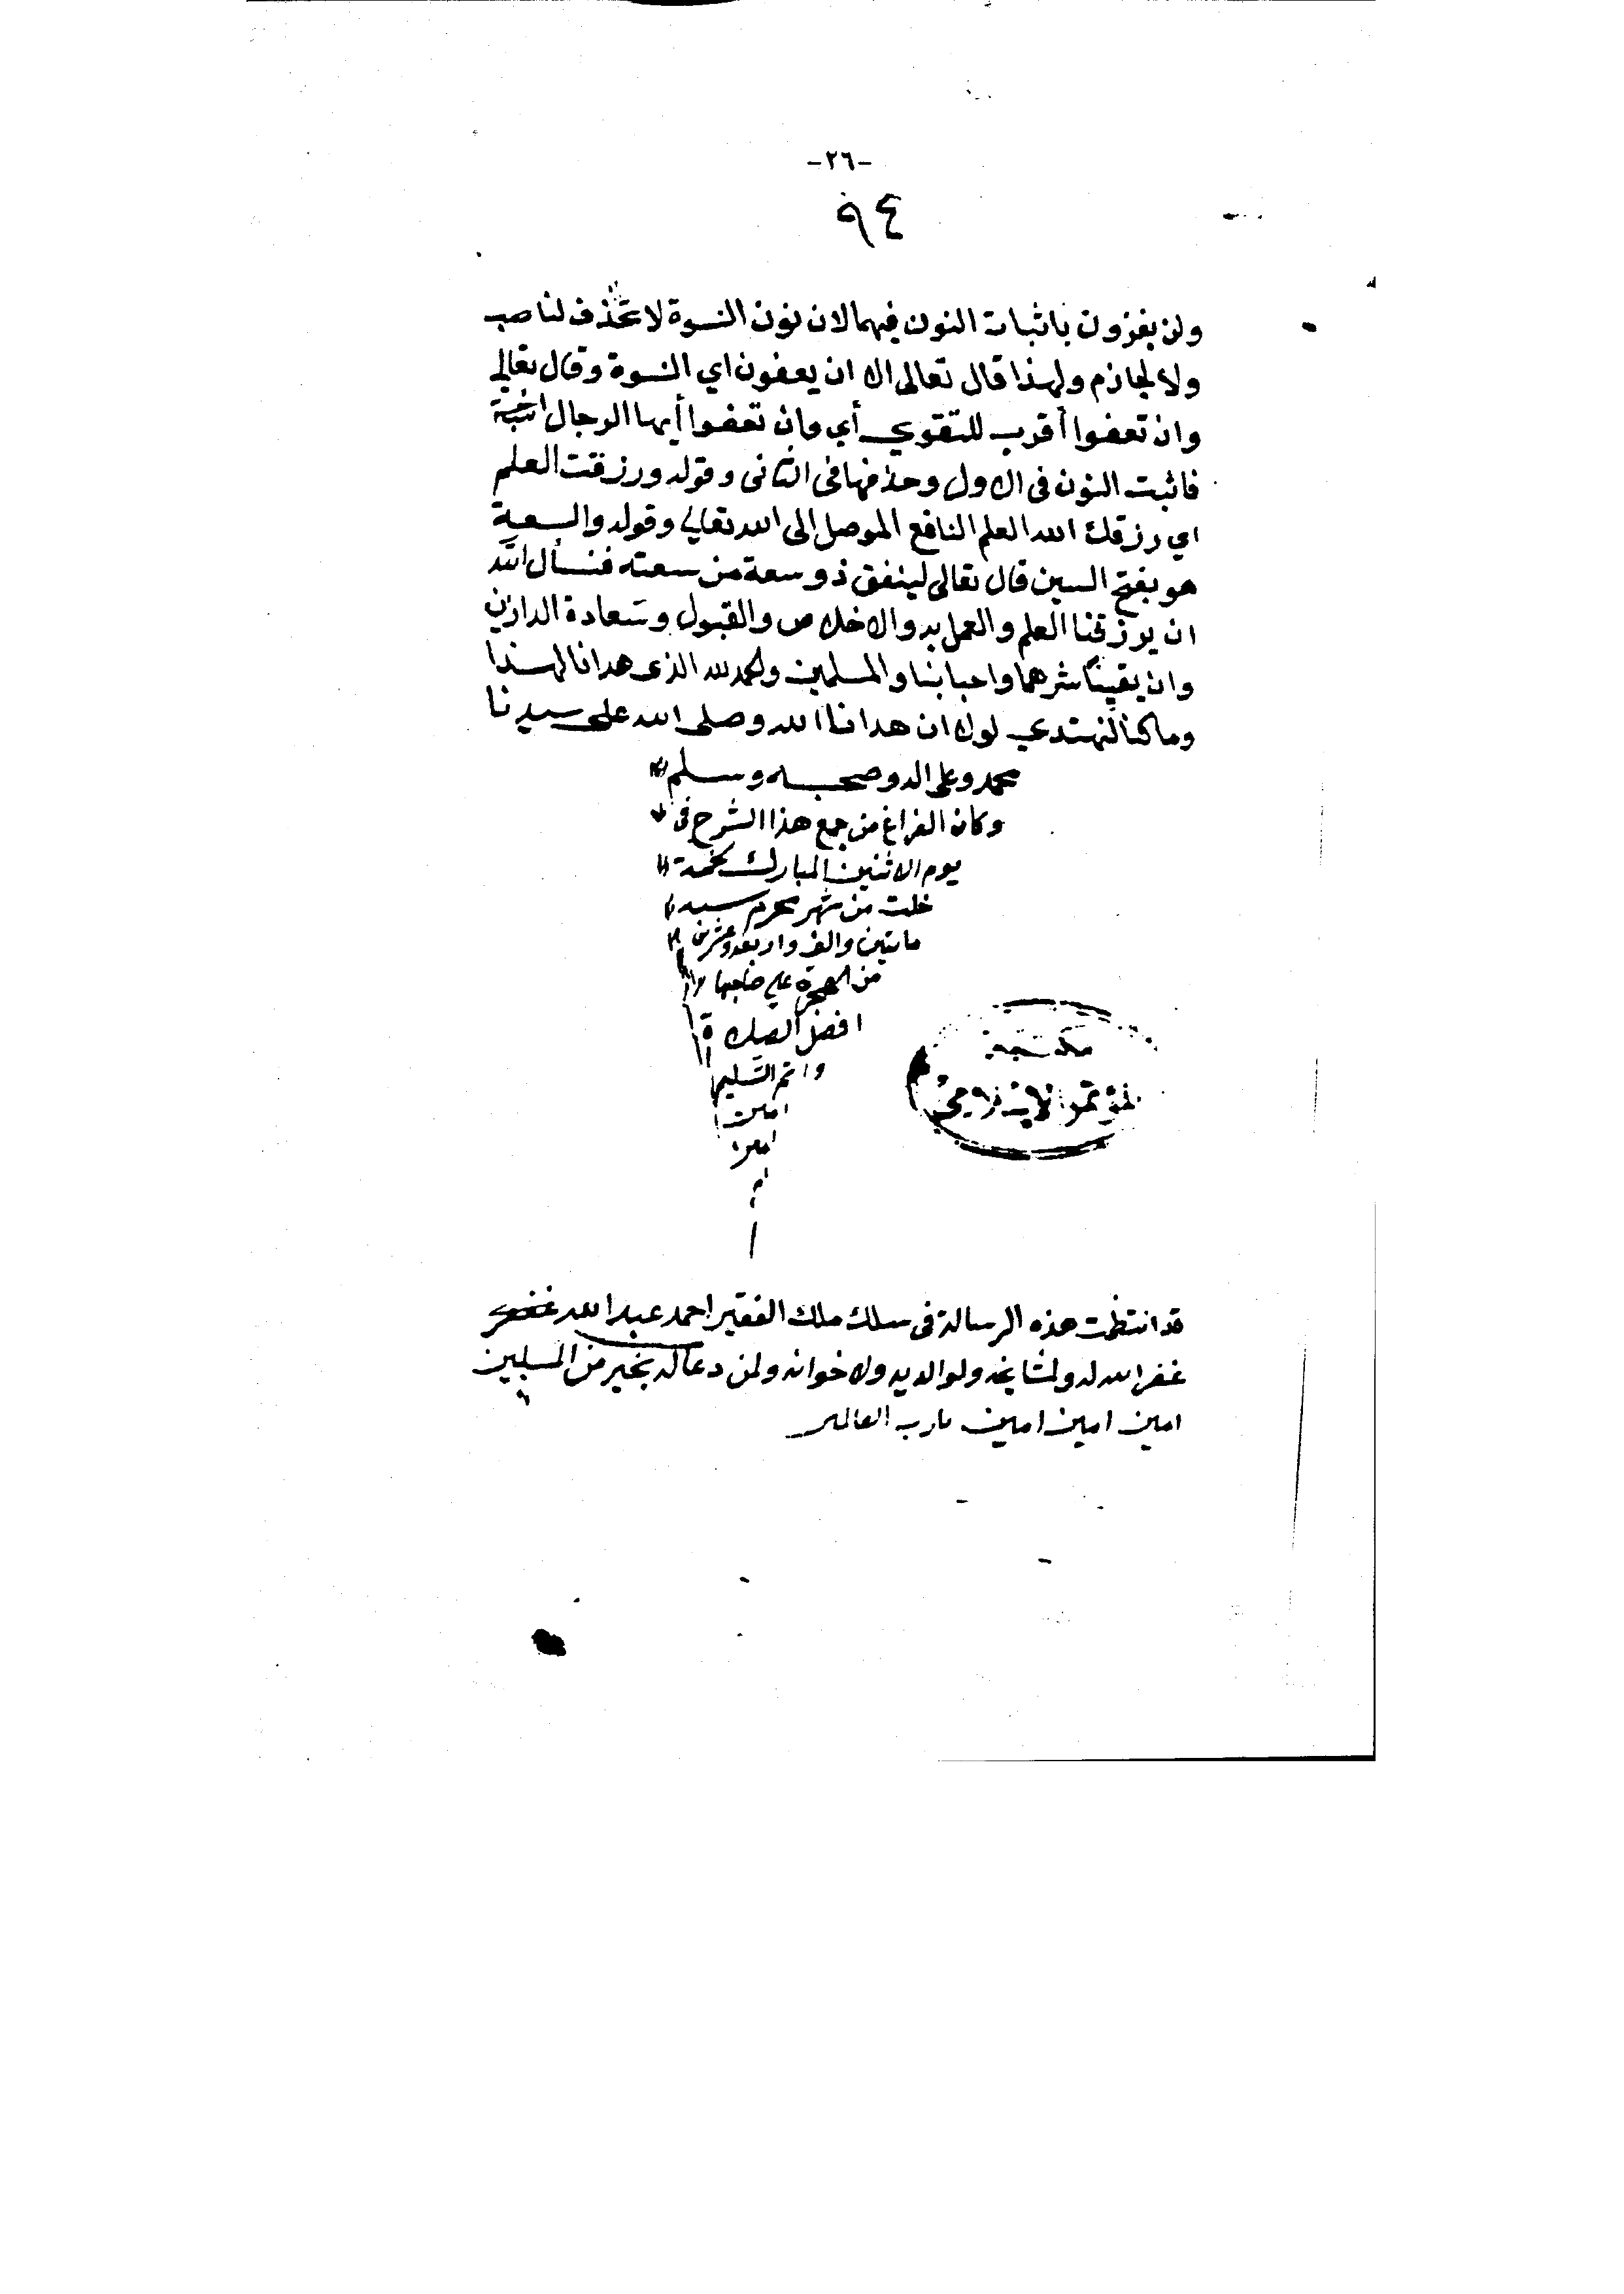 -٢٦-
٩٤
ولن يغزون باثبات النون فيهما لان نون النسوة لا تحذف لناصب
ولا لجازم ولهذا قال تعالى الا ان يعفون اي النسوة وقال تعالى
وان تعفوا أقرب للتقوي أي وان تعفوا أيها الرجال
فاثبت النون فى الاول وحذفها فى الثانى وقوله ورزقت العلم
اي رزقك الله العلم النافع الموصل الى الله تعالي وقوله والسعة
هو بفتح السين قال تعالى لينفق ذو سعة من سعته فنسأل الله
ان يرزقنا العلم والعمل به والاخلاص والقبول وسعادة الدارين
وان يقينا شرهما واحبابنا والمسلمين والحمد لله الذى هدانا لهذا
وما كنا لنهتدي لولا ان هدانا الله وصلى الله على سيدنا
محمد وعلى اله وصحبه وسلم
وكان الفراغ من جمع هذا الشرح فى
يوم الاثنين المبارك لخمسة
خلت من شهر محرم سنة
مايتين والف واربعة وعشرين
من الهجرة علي صاحبها
افضل الصلاة
واتم التسليم
امين
امين
ام
ا
مكتبة
المؤتمر الاسلامي
قد انتظمت هذه الرسالة فى سلك ملك الفقير احمد عبد الله
غفر الله له ولمشايخه ولوالديه ولاخوانه ولمن دعا له بخير من المسلمين
امين امين امين يارب العالمين